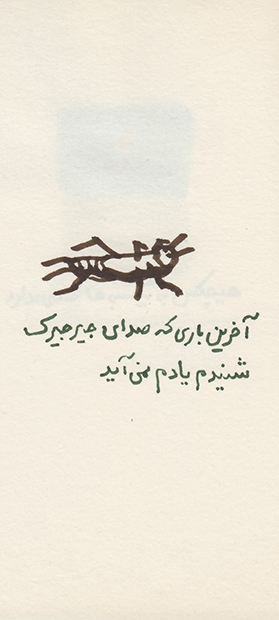 آخرین باری که صدای جیرجیرک
شنیدم یادم نمی‌آید